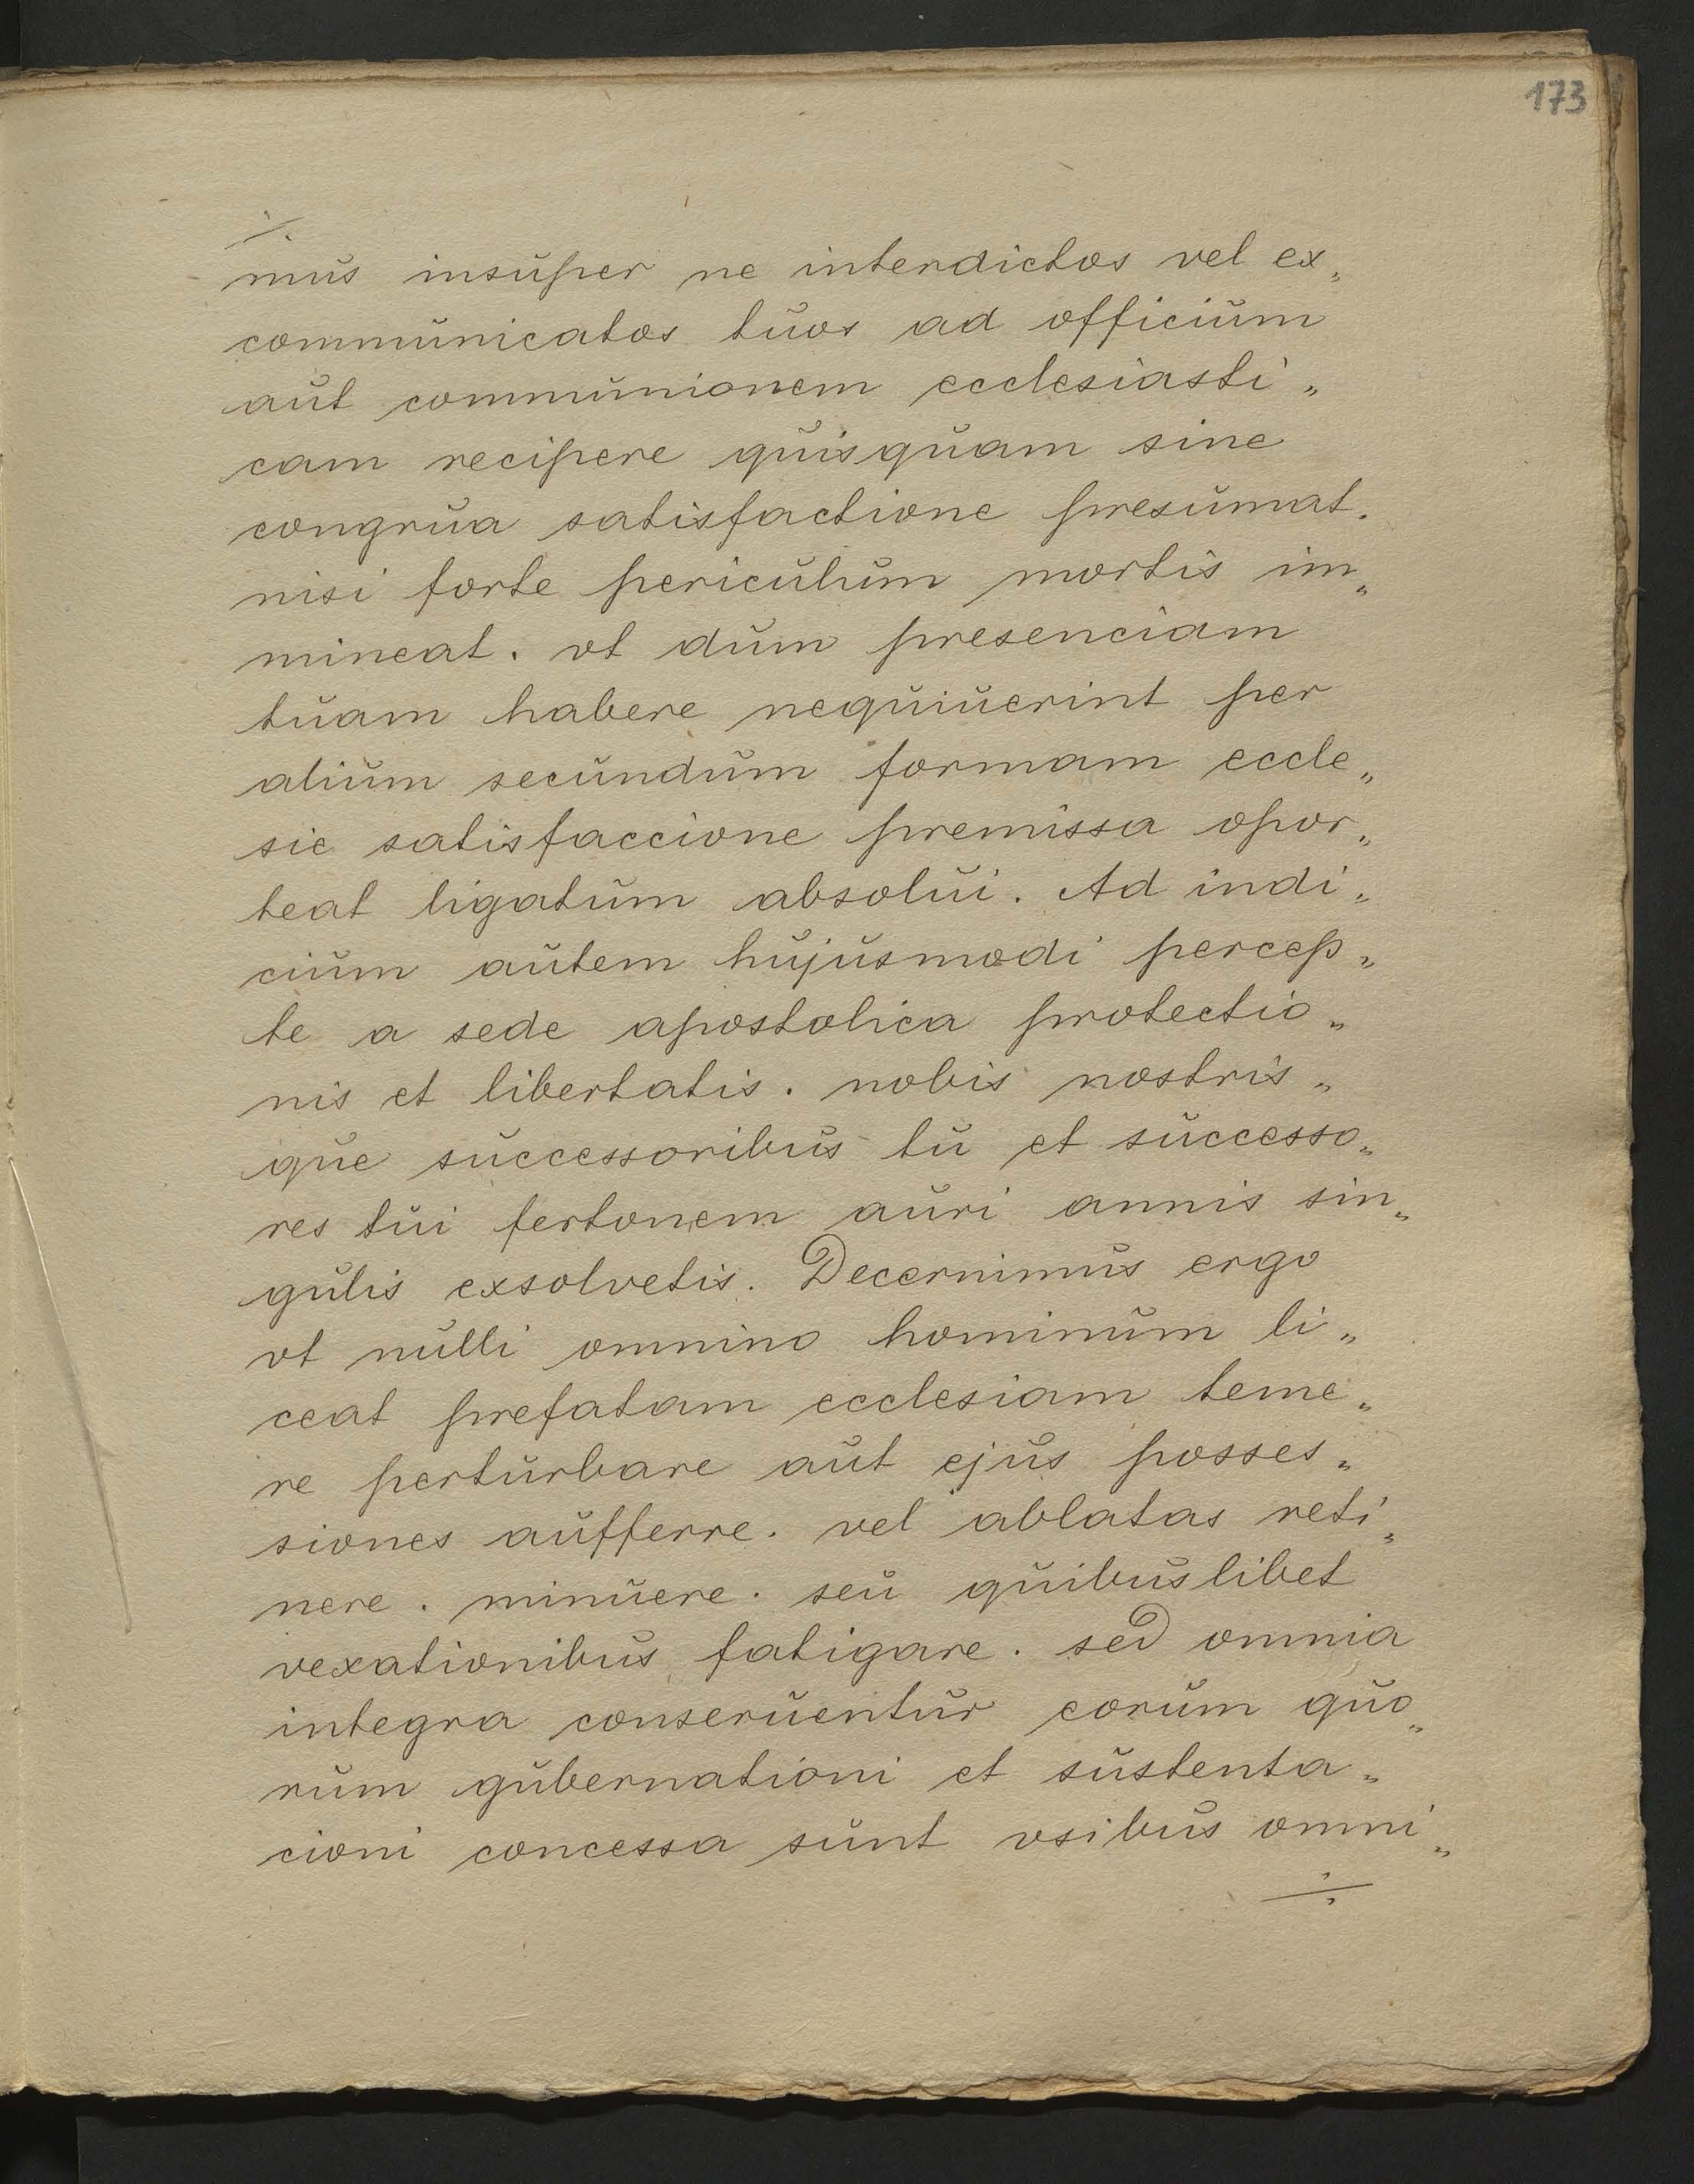 173
mus insuper ne interdictos vel ex„
communicatos tuos ad officium
aut communionem ecclesiasti„
cam recipere quisquam sine
congrua satisfactione presumat.
nisi forte periculum mortis im„
mineat. vt dum presenciam
tuam habere nequiuerint per
alium secundum formam eccle„
sie satisfaccione premissa opor„
teat ligatum absolui. Ad indi„
cium autem hujusmodi percep„
te a sede apostolica protectio„
nis et libertatis. nobis nostris„
que successoribus tu et successo„
res tui fertonem auri annis sin„
gulis exsolvetis. Decernimus ergo
vt nulli omnino hominum li„
ceat prefatam ecclesiam teme„
re perturbare aut ejus posses„
siones aufferre. vel ablatas reti„
nere. minuere. seu quibuslibet
vexationibus fatigare. sed omnia
integra conseruentur eorum quo„
rum gubernationi et sustenta„
cioni concessa sunt vsibus omni„